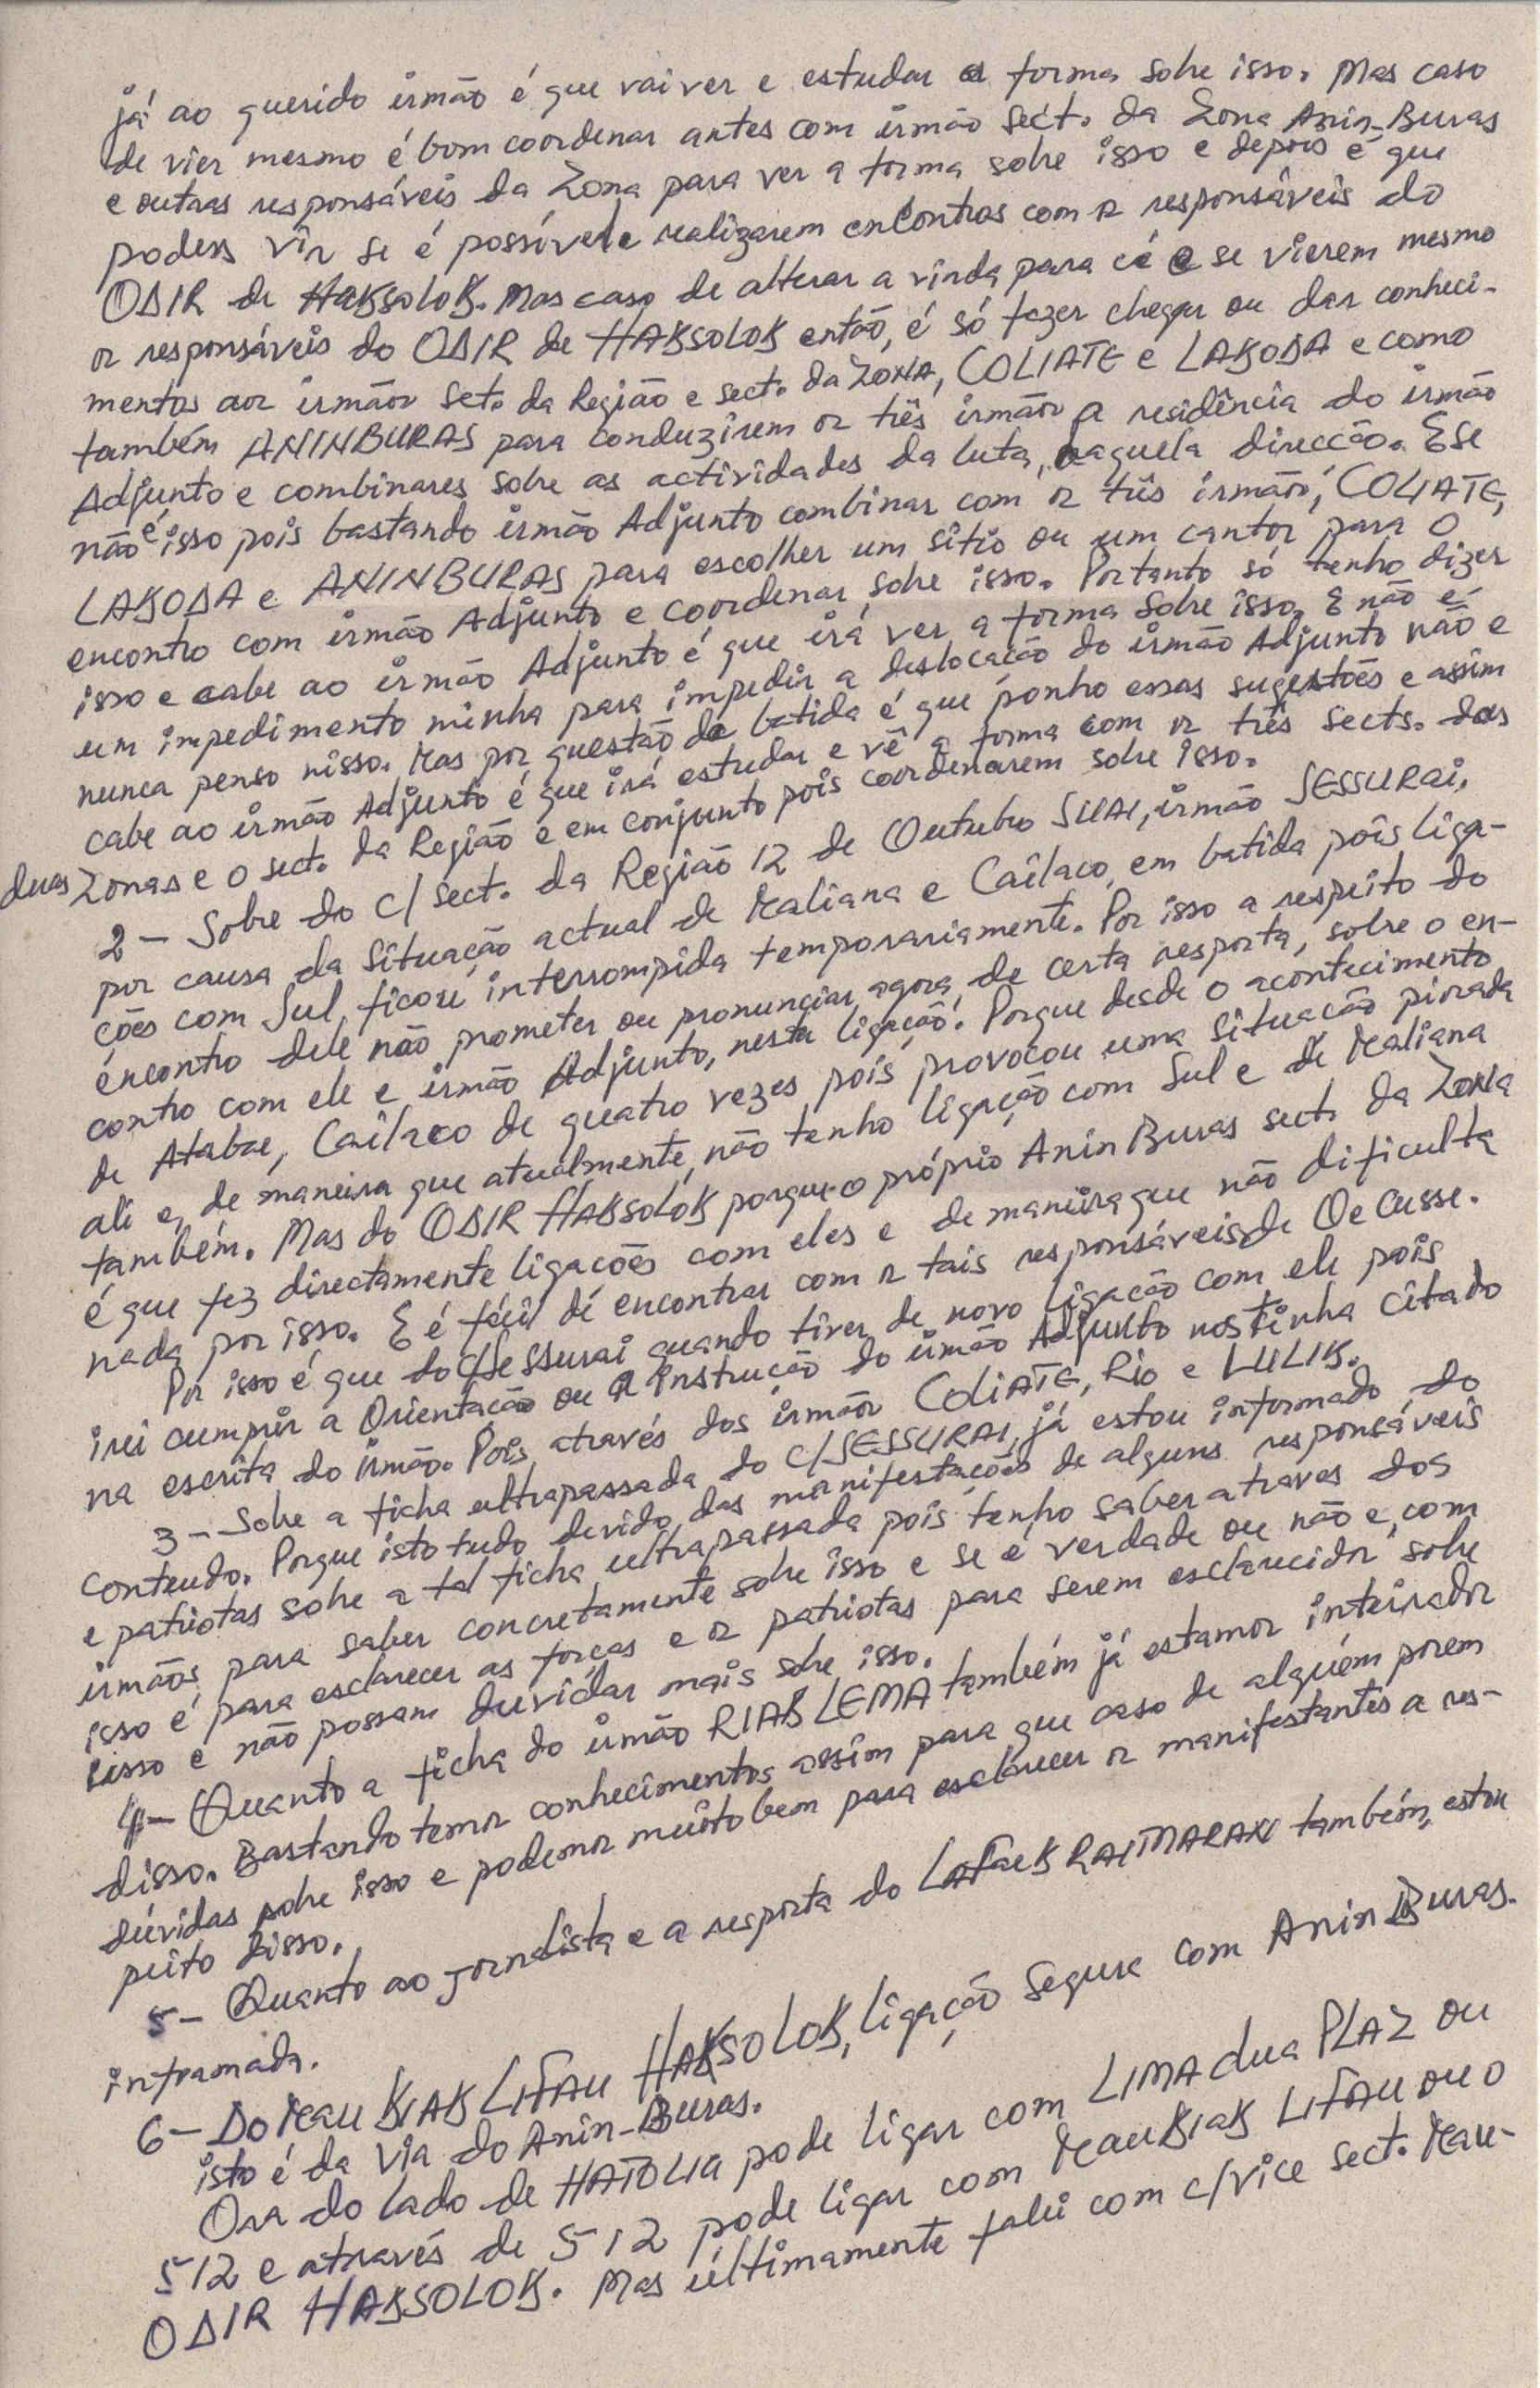 já ao querido irmão é que vai ver e estudar a forma sobre isso. Mas caso
de vier mesmo é bom coordenar antes com irmão Sect. da Zona Anin-Buras
e outras responsáveis da Zona para ver a forma sobre isso e depois é que
podem vir se é possível e realizarem encontros com os responsáveis do
ODIR de HAKSOLOK. Mas caso de alterar a vinda para cá e se vierem mesmo
os responsáveis do ODIR de HAKSOLOK então, é só fazer chegar ou dar conheci-
mentos aos irmãos Set. da Região e sect. da ZONA, COLIATE e LAKODA e como
também ANINBURAS para conduzirem os três irmãos a residência do irmão
Adjunto e combinares sobre as actividades da luta, naquela direcção. E se
não é isso pois bastando irmão Adjunto combinar com os três irmãos, COLIATE,
LAKODA e ANINBURAS para escolher um sítio ou um cantor para o
encontro com irmão Adjunto e coordenar sobre isso. Portanto só tenho dizer
isso e cabe ao irmão Adjunto é que irá ver a forma sobre isso. E não é
um impedimento minha para impedir a deslocação do irmão Adjunto não e
nunca penso nisso. Mas por questão de batida é que ponho essas sugestões e assim
cabe ao irmão Adjunto é que irá estudar e vê a forma com os três sects. das
duas Zonas e o sect. da Região e em conjunto pois coordenarem sobre isso.
2 - Sobre do c/ sect. da Região 12 de Outubro SUAI, irmão SESSURAI,
por causa da situação actual de Maliana e Caílaco, em batida pois liga-
ções com Sul, ficou interrompida temporariamente. Por isso a respeito do
encontro dele não prometer ou pronunciar agora, de certa resposta, sobre o en-
contro com ele e irmão Adjunto, nesta ligação. Porque desde o acontecimento
de Atabae, Caílaco de quatro vezes pois provocou uma situação piorada
ali e, de maneira que atualmente, não tenho ligação com Sul e de Maliana
também. Mas do ODIR HAKSOLOK porque o próprio Anin Buras sect. da ZONA
é que fez directamente ligações com eles e de maneira que não dificulta
nada por isso. E é fácil de encontrar com os tais responsáveis de Oe Cusse.
Por isso é que do c/SeSSurai quando tiver de novo ligação com ele pois
irei cumprir a Orientação ou a Instrução do irmão Adjunto nos tinha citado
na escrita do irmão. Pois através dos irmãos COLIATE, Rio e LULIK.
3 - Sobre a ficha ultrapassada do c/SESSURAI, já estou informado do
conteudo. Porque isto tudo devido das manifestações de alguns responsáveis
e patriotas sobre a tal ficha ultrapassada pois tenho saber atraves dos
irmãos para saber concretamente sobre isso e se é verdade ou não e, com
isso é para esclarecer as forças e os patriotas para serem esclarecidos sobre
isso e não possam duvidar mais sobre isso.
4 - Quanto a ficha do irmão RIAK LEMA também já estamos inteirados
disso. Bastando temos conhecimentos assim para que caso de alguém porem
dúvidas sobre isso e podemos muito bem para esclarecer os manifestantes a res-
peito disso.
5 - Quanto ao jornalista e a resposta do LAFAEK RAIMARAN também, estou
informado.
6 - Do MAU KIAK LIFAU HAKSOLOK, ligação segura com Anin Buras.
isto é da via do Anin-Buras.
Ora do lado de HATOLIA pode ligar com LIMA dua PLAZ ou
512 e através de 512 pode ligar com MAUKIAK LIFAU ou o
ODIR HAKSOLOK. Mas últimamente falei com c/vice sect. Mau-